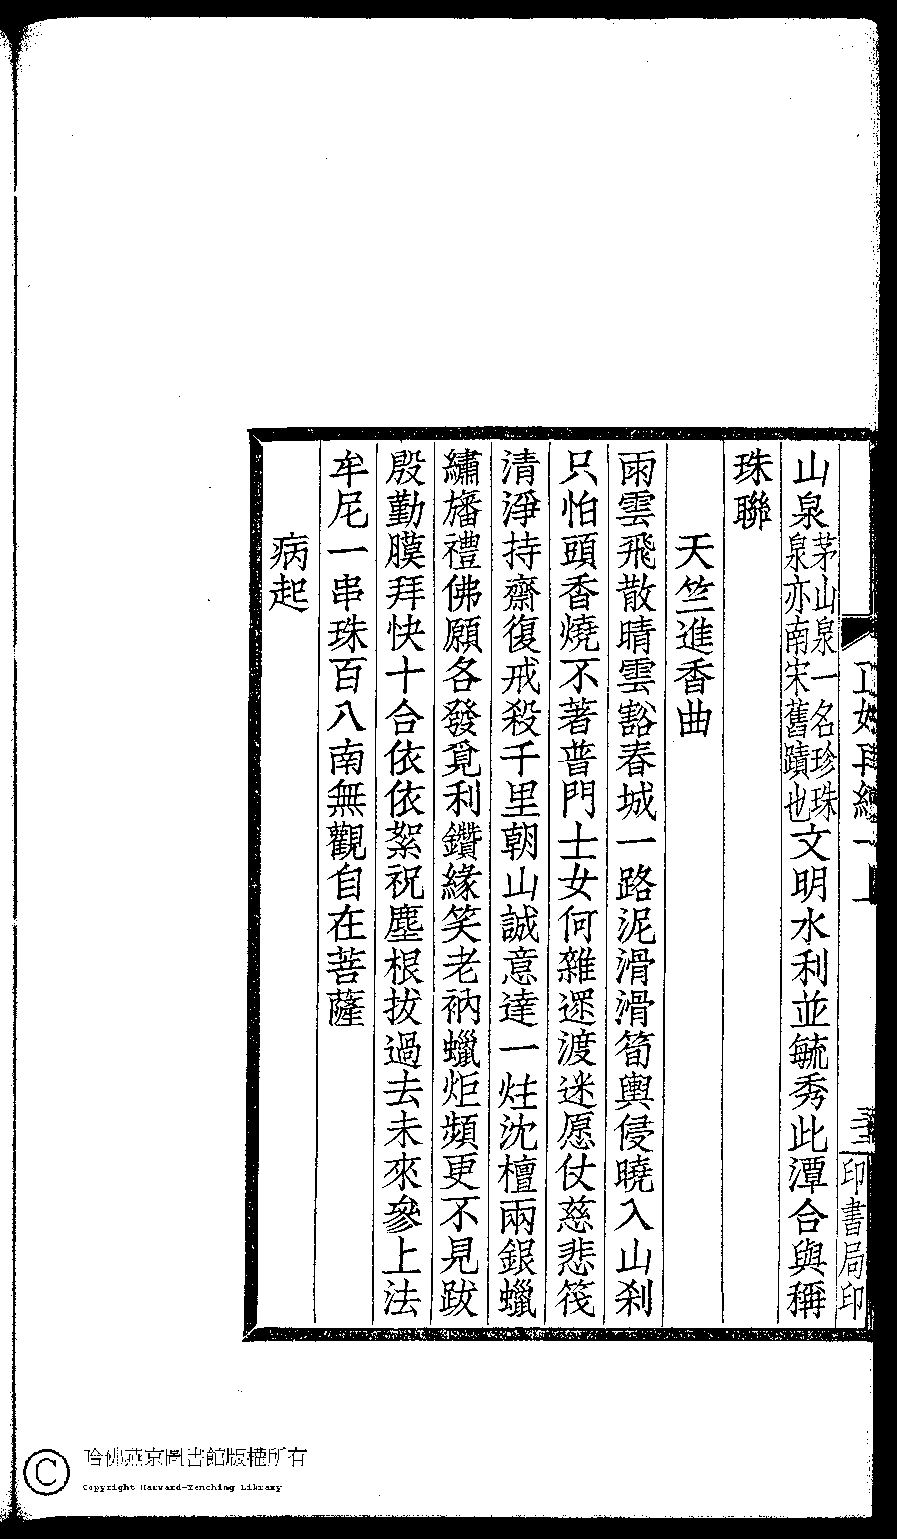 山泉茅山泉一名珍珠泉亦南宋舊蹟也文明水利並毓秀此潭合與稱
珠聯
天竺進香曲
雨雲飛散晴雲豁春城一路泥滑滑筍輿侵曉入山刹
只怕頭香燒不著普門士女何雜遝渡迷愿仗慈悲筏
清淨持齋復戒殺千里朝山誠意達一炷沈檀兩銀蠟
繡旛禮佛願各發覓利鑽緣笑老衲蠟炬頻更不見跋
殷勤膜拜快十合依依絮祝塵根拔過去未來參上法
牟尼一串珠百八南無觀自在菩薩
病起
印書局印
哈佛燕京圖書館版權所有
Copyright Harvard-Yenching Library